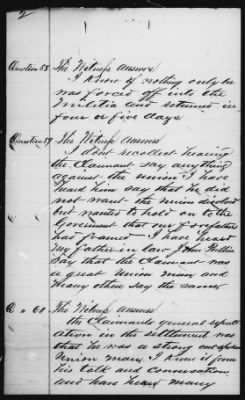 2
Question 58 The Witness Answers
I Know of nothing only he
was forced off into the
Militia and returned in
four or five days
Question 59 The Witness Answers
I dont recollect hearing
the Claimant say anything
against the union I have
heard him say that he did
not want the union disolved
but wanted to hold on to the
Goverment that our forefathers
had framed I have heard
My father in law John
Say that the Claimant was
a great Union man and
Heany others say the same
Q " 60 The Witness answers
the Claimants general reput
ation in the settlement was
that he was a strong out spoken
Union man, I know it from
his talk and conversation
and have heard many